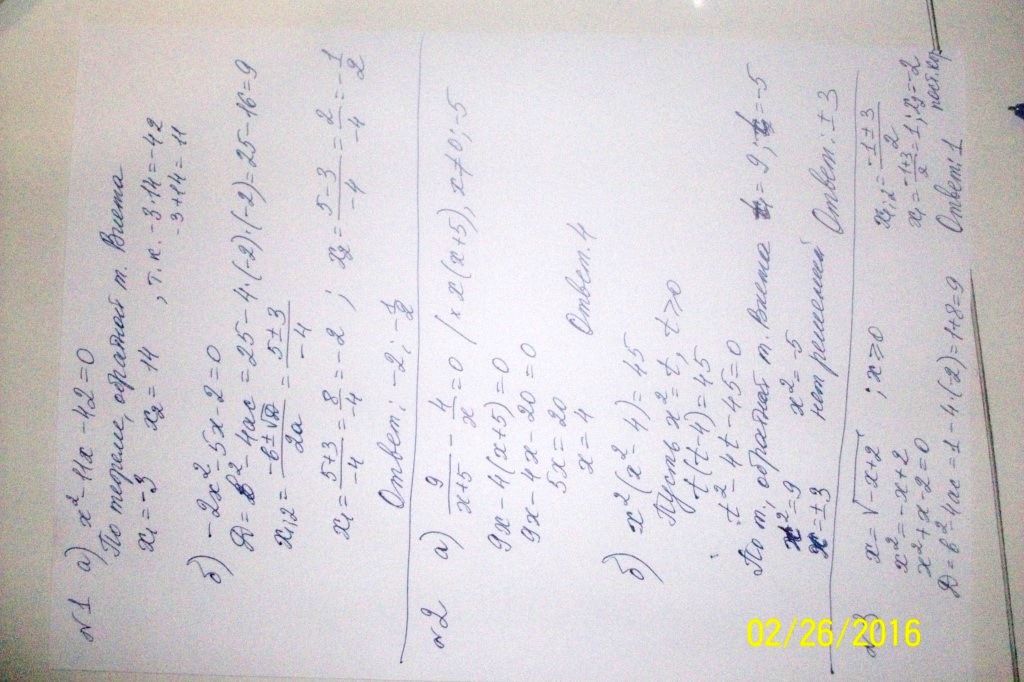 №1 а) x² - 11x - 42 = 0
По теореме, обратной т. Виета
x₁ = -3 x₂ = 14 , т.к. -3·14 = -42
-3+14 = 11
б) -2x² - 5x - 2 = 0
D = b² - 4ac = 25 - 4·(-2)·(-2) = 25 - 16 = 9
x₁;₂ = (-b ± √D)/2a = (5 ± 3)/-4
x₁ = (5+3)/-4 = 8/-4 = -2 ; x₂ = (5-3)/-4 = 2/-4 = -1/2
Ответ: -2; -1/2
№2 а) 9/(x+5) - 4/x = 0 / × x(x+5), x ≠ 0; -5
9x - 4(x+5) = 0
9x - 4x - 20 = 0
5x = 20
x = 4 Ответ. 4
б) x²(x² - 4) = 45
Пусть x² = t, t ≥ 0
t(t-4) = 45
t² - 4t - 45 = 0
По т., обратной т. Виета t₁ = 9; t₂ = -5
x² = 9 x² = -5
x = ±3 нет решений Ответ: ±3
№3 x = √-x+2 ; x ≥ 0
x² = -x+2
x² + x - 2 = 0
D = b² - 4ac = 1 - 4·(-2) = 1+8 = 9
x₁;₂ = (-1 ± 3)/2
x₁ = (-1+3)/2 = 1; x₂ = -2
пост. кор.
Ответ: 1
02/26/2016